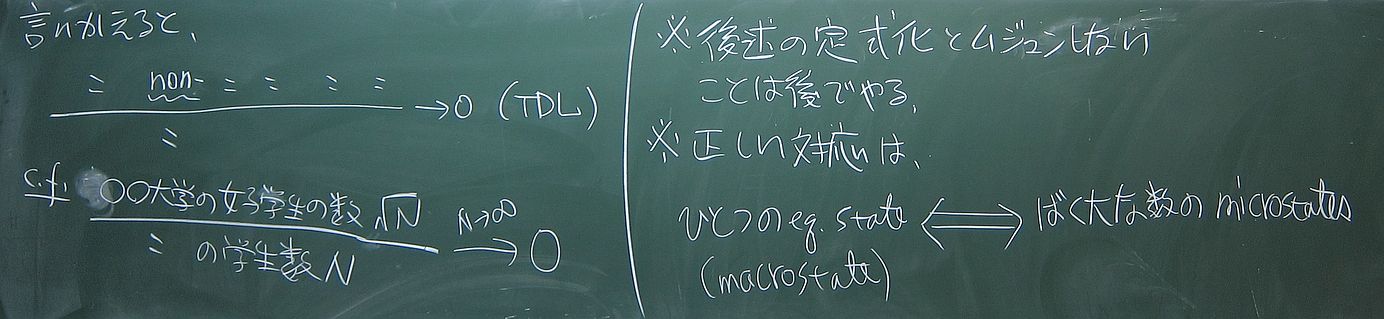 言いかえると、
〃 non- 〃 〃 〃 〃
→0 (TDL)
〃
c.f. 〇〇大学の女子学生の数√N
N→∞
→ 0
〃 の学生数N
※後述の定式化とムジュンしない
ことは後でやる。
※正しい対応は、
ひとつのeq. state ⟺ ばく大な数のmicrostates
(macrostate)